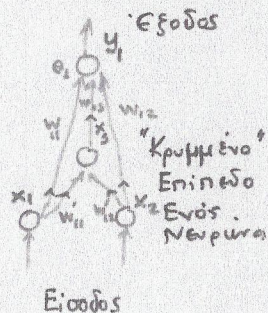 Έξοδος
y₁
θ₁
w₁₁
w₁₃
w₁₂
x₃
"Κρυμμένο"
Επίπεδο
Ενός
Νευρώνα
x₁
w'₁₁
w'₁₂
x₂
Είσοδος